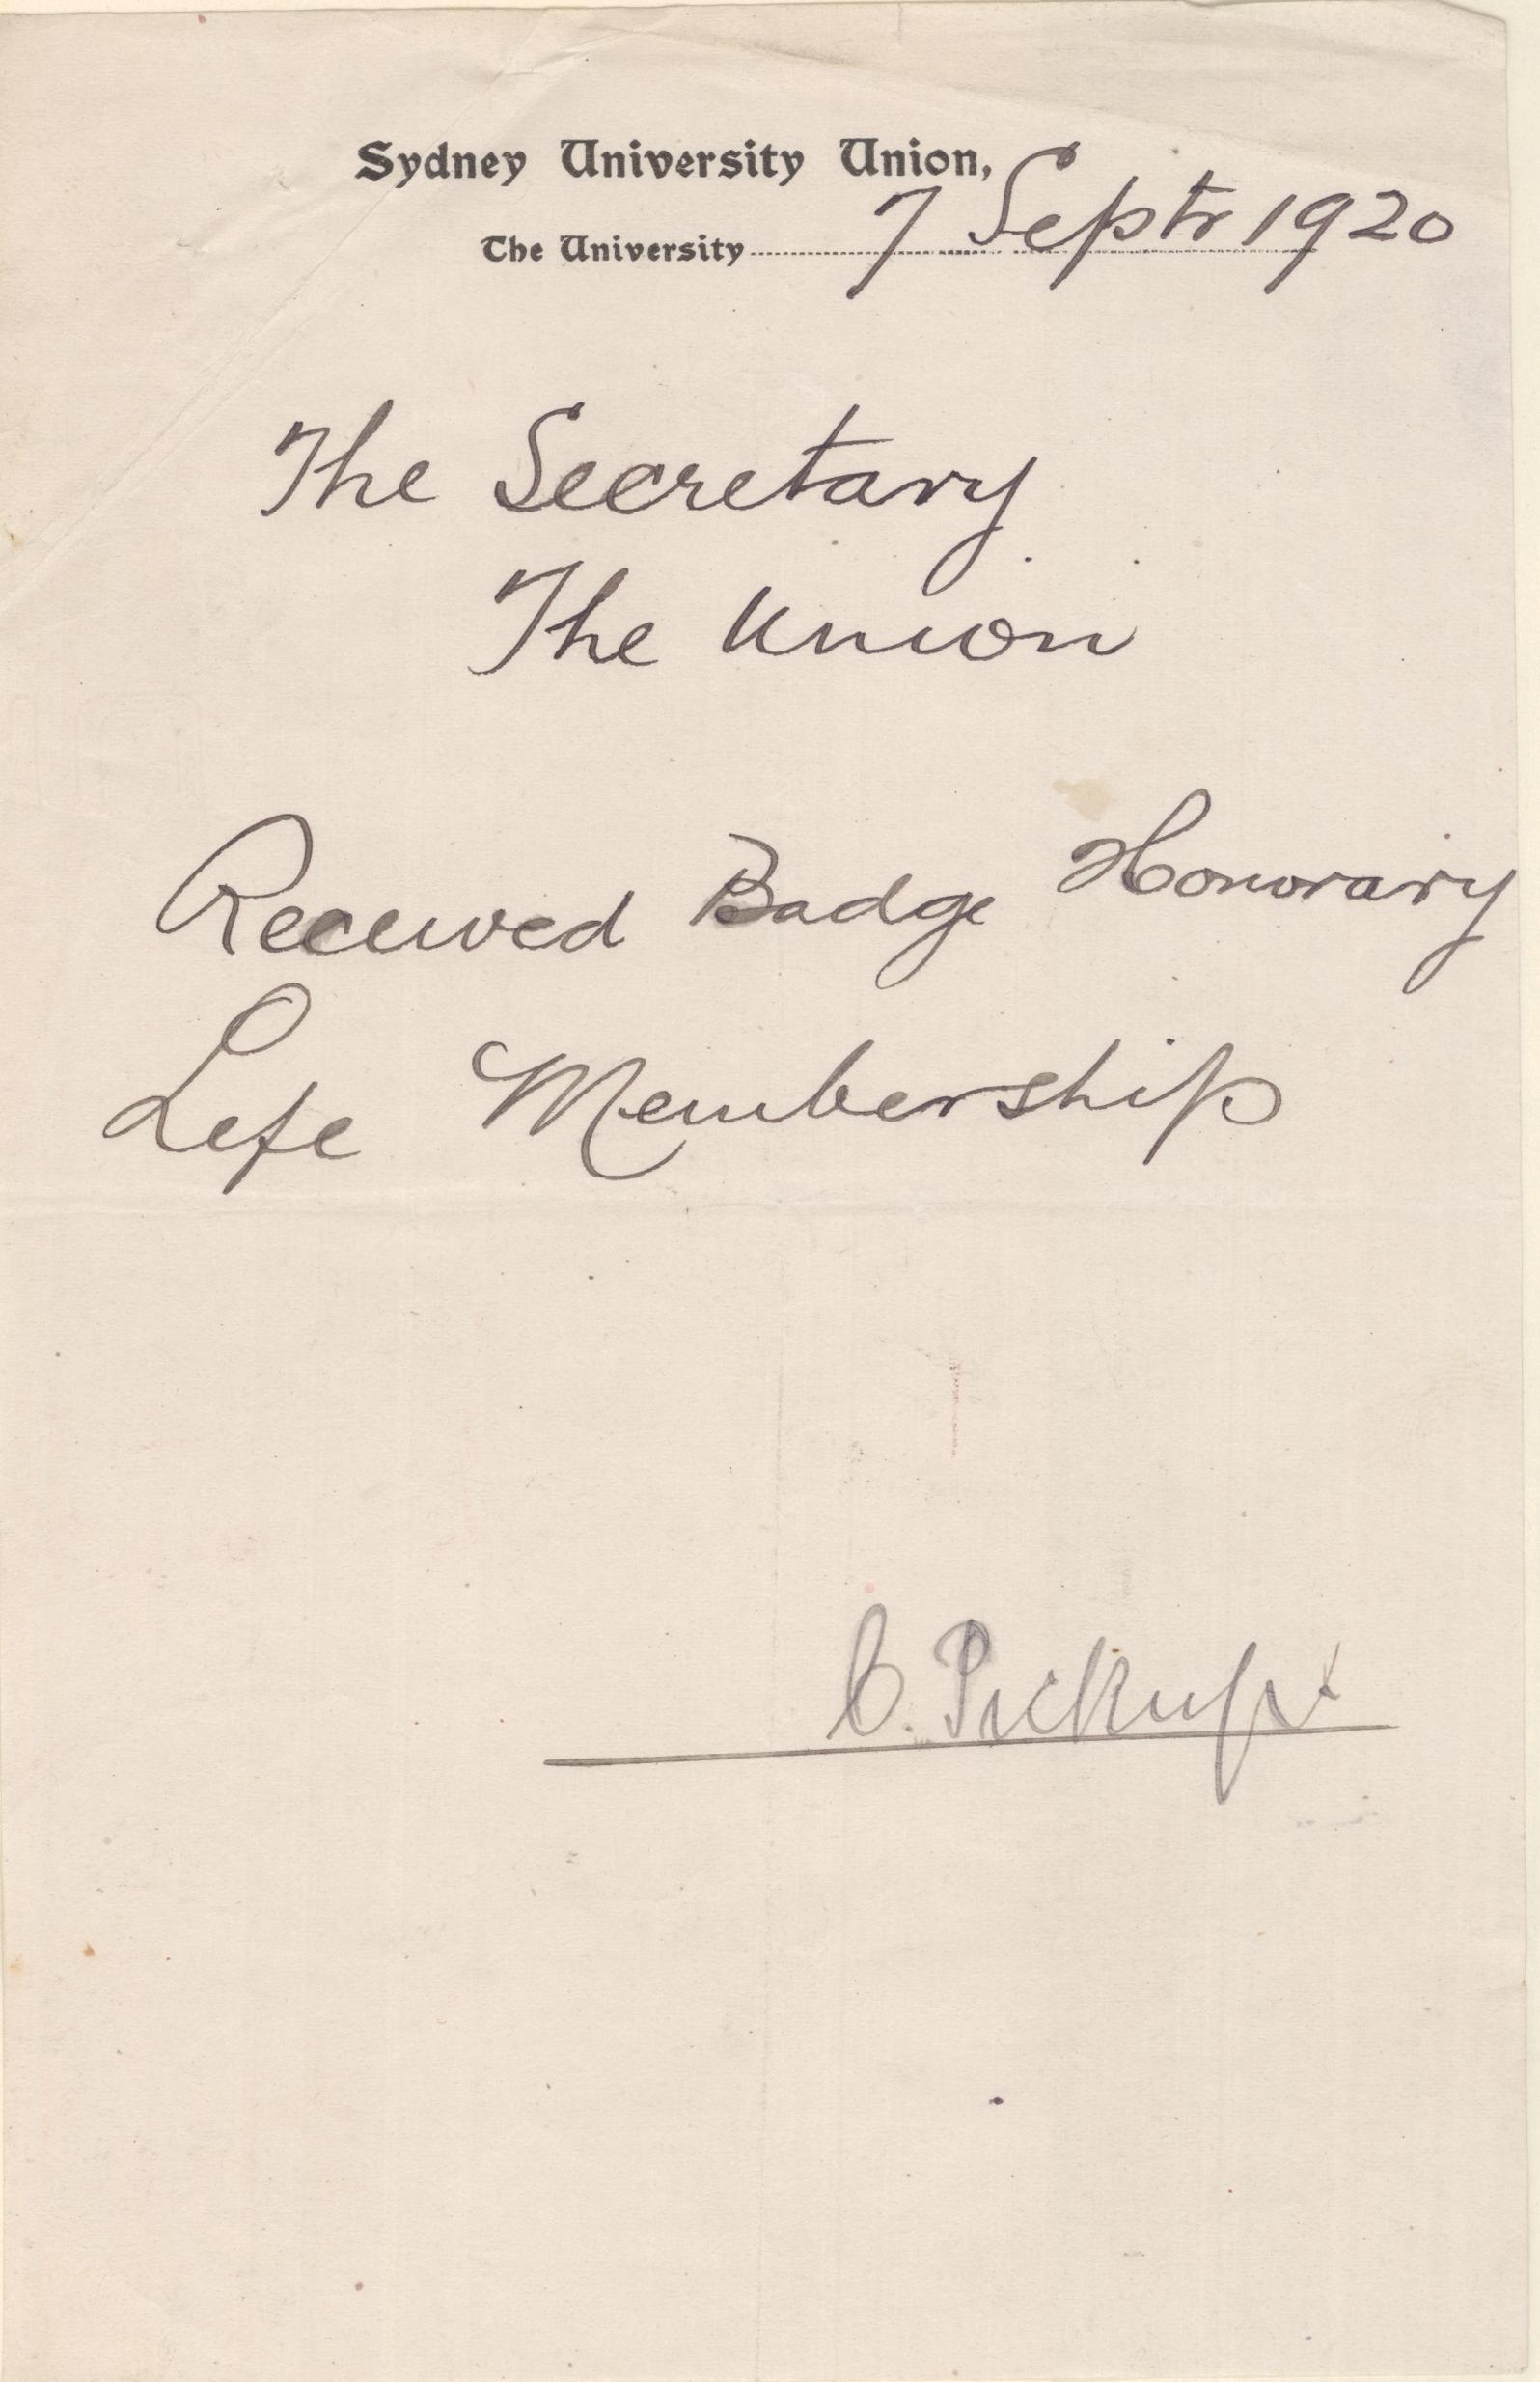 Sydney University Union,
The University 7 Septr 1920
The Secretary
The Union
Received Badge Honorary
Life Membership
C. Pickup